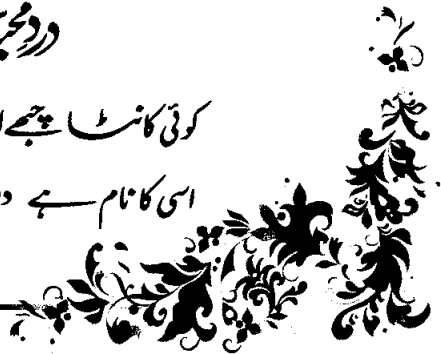 درد
کوئی کانٹا چبھے
اسی کا نام ہے